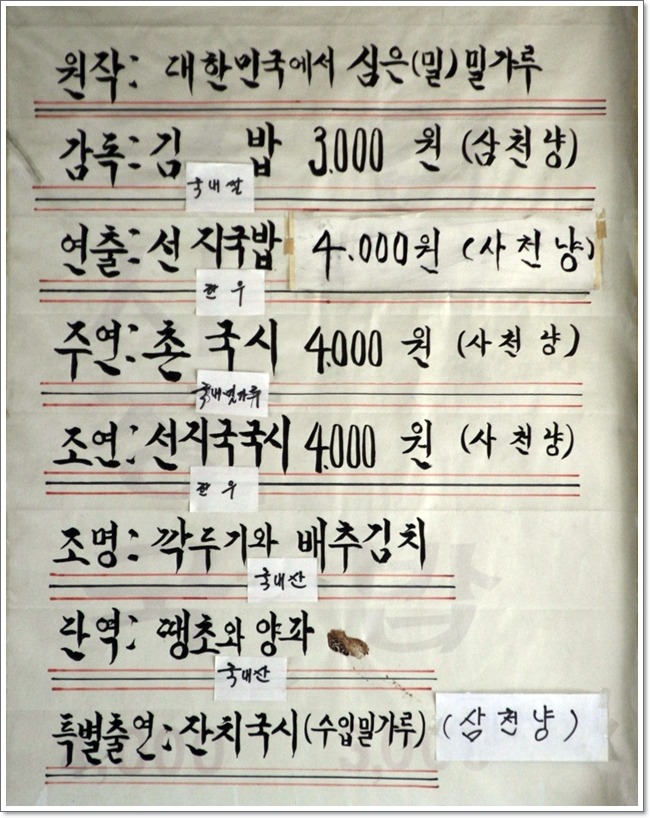 원작: 대한민국에서 심은(밀) 밀가루
감독: 김 밥 3.000 원 (삼천냥)
국내쌀
연출: 선지국밥 4.000원 (사천냥)
한우
주연: 촌 국시 4.000 원 (사천냥)
국내밀가루
조연: 선지국국시 4.000 원 (사천냥)
한우
조명: 깍두기와 배추김치
국내산
단역: 땡초와 양파
국내산
특별출연: 잔치국시(수입밀가루) (삼천냥)